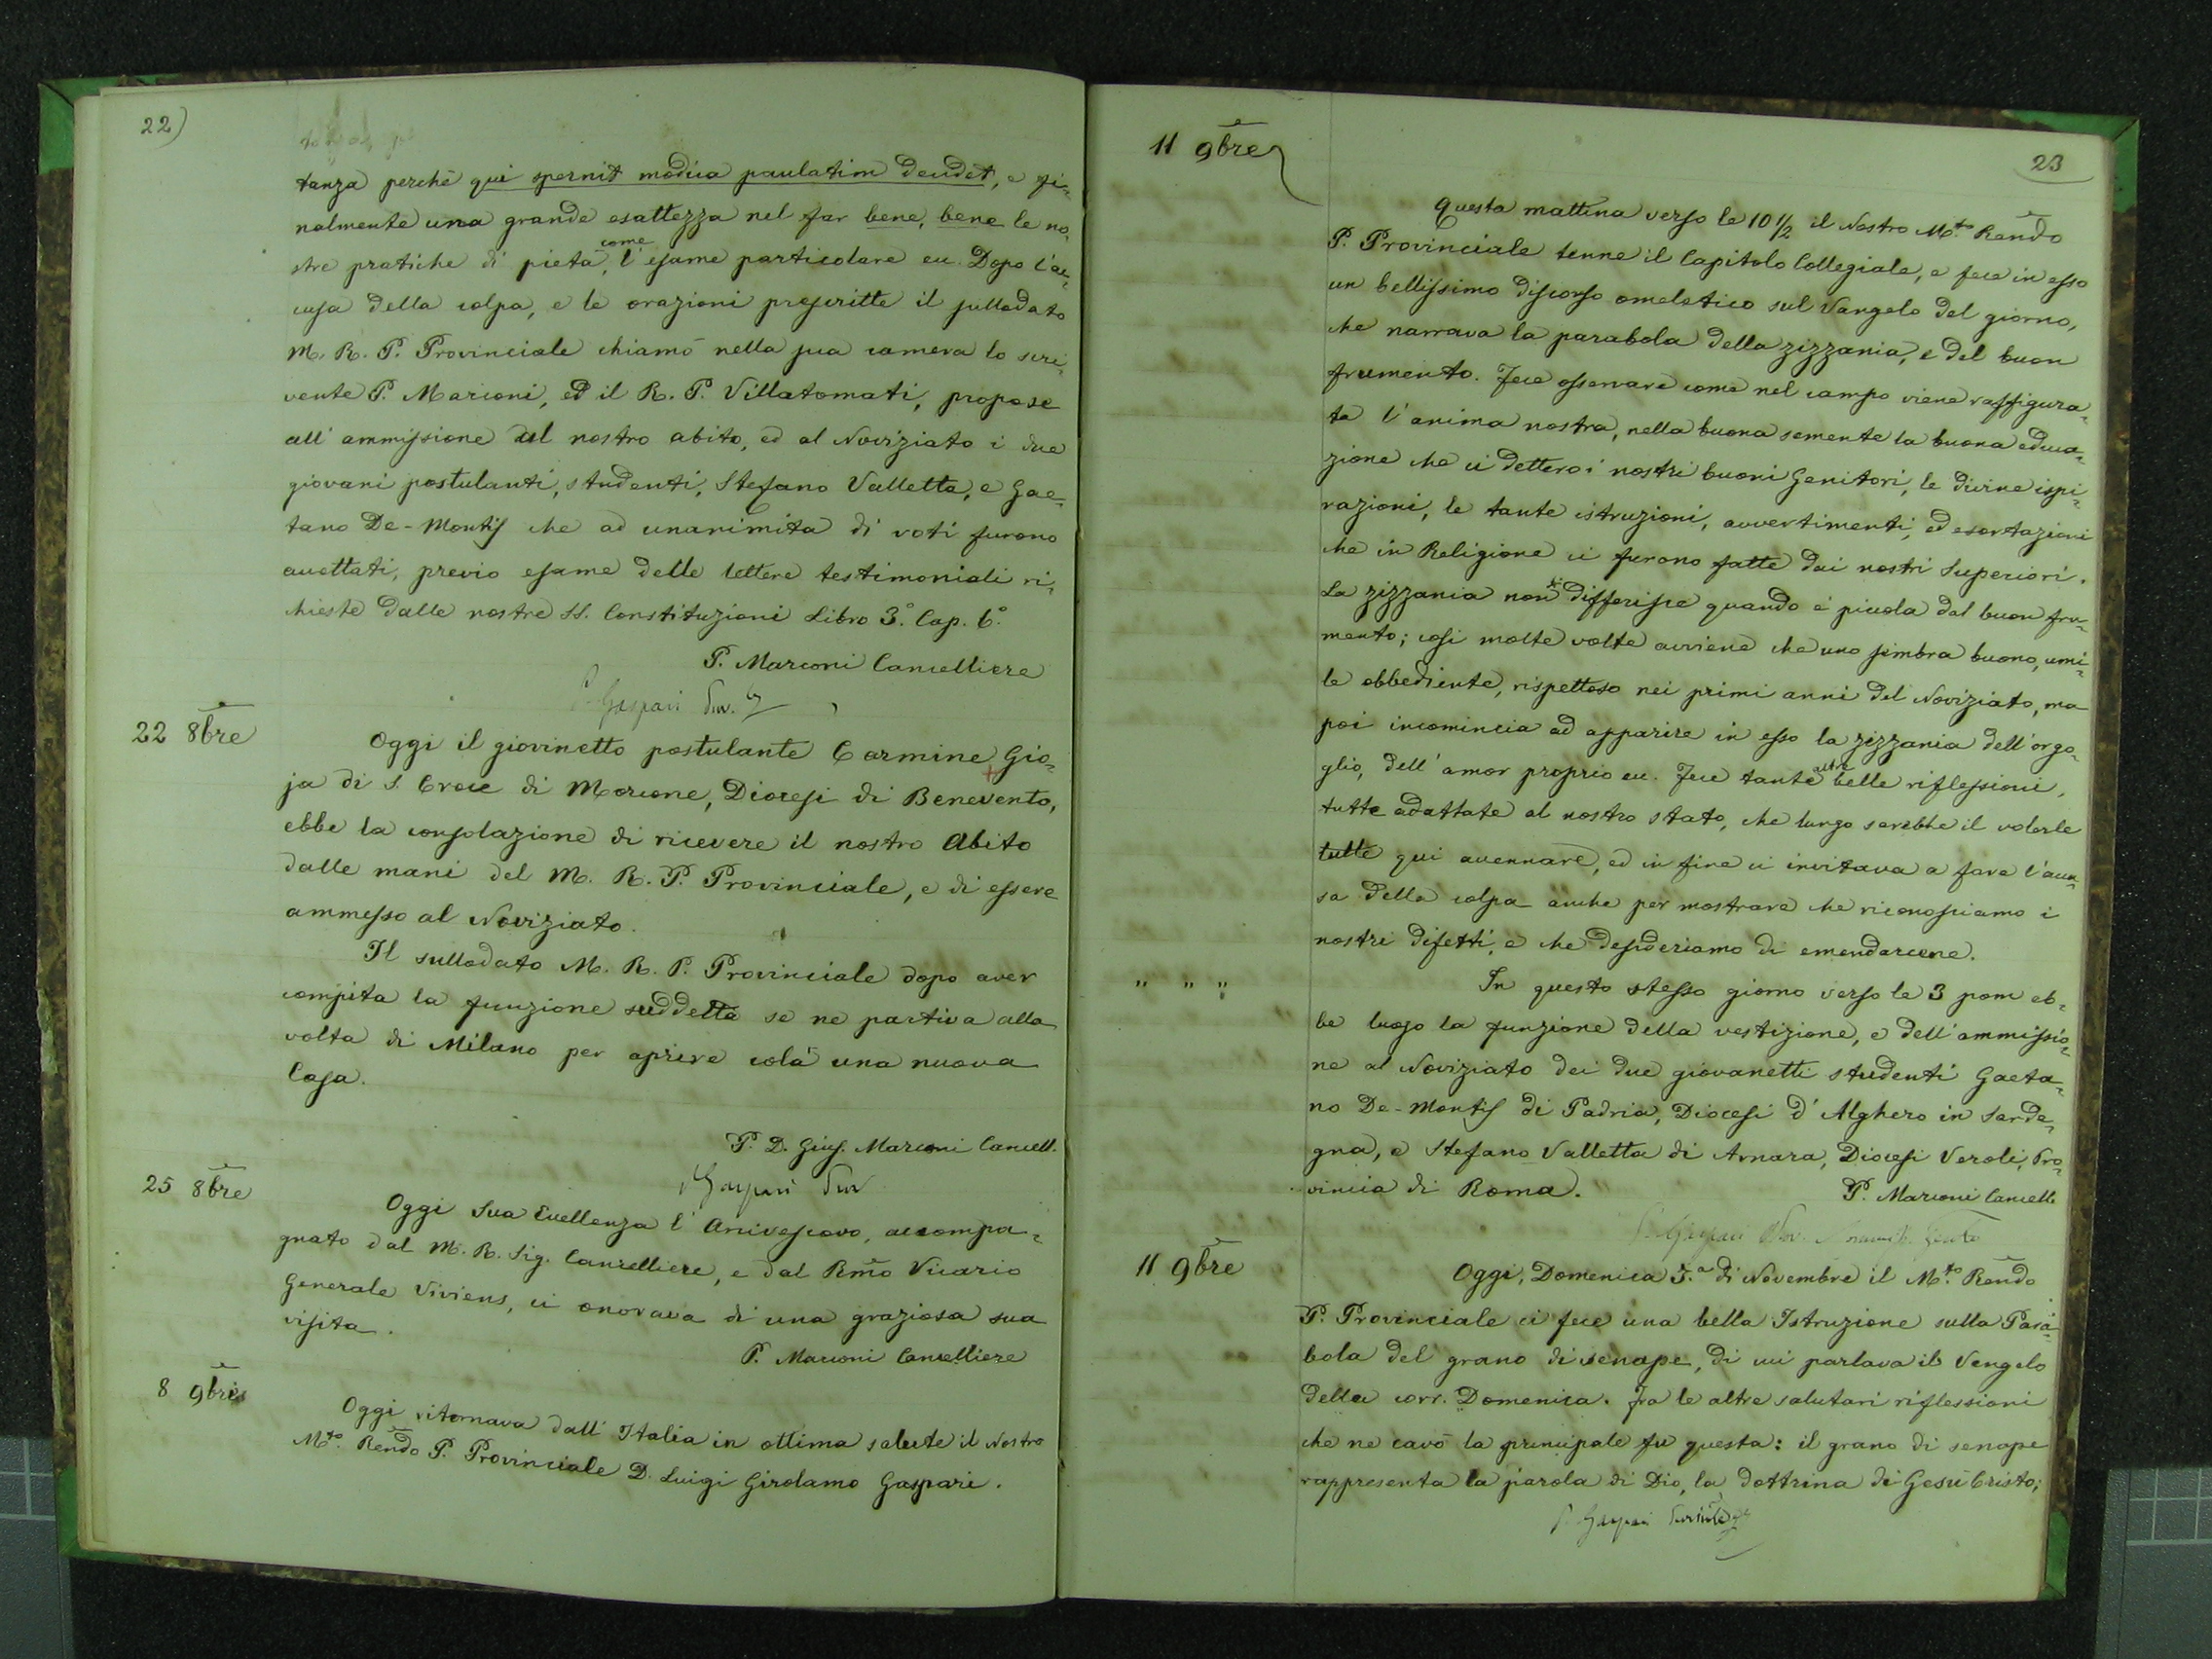 22)
tanza perchè qui spernit modica paulatim decidet, e fi-
nalmente una grande esattezza nel far bene, bene le no-
stre pratiche di pietà, come l'esame particolare ecc. Dopo l'ac-
cusa della colpa, e le orazioni prescritte il sullodato
M. R. P. Provinciale chiamò nella sua camera lo scri-
vente P. Marconi, ed il R. P. Villatomati, propose
all'ammissione del nostro abito, ed al Noviziato i due
giovani postulanti, studenti, Stefano Valletta, e Gae-
tano De-Montis che ad unanimita di voti furono
accettati, previo esame delle lettere testimoniali ri-
chieste dalle nostre SS. Constituzioni Libro 3.° Cap. 6.°
P. Marconi Cancelliere
P. Gaspari
22 8bre
Oggi il giovinetto postulante Carmine Gio-
ja di S. Croce di Morcone, Diocesi di Benevento,
ebbe la consolazione di ricevere il nostro Abito
dalle mani del M. R. P. Provinciale, e di essere
ammesso al Noviziato.
Il sullodato M. R. P. Provinciale dopo aver
compita la funzione suddetta se ne partiva alla
volta di Milano per aprire colà una nuova
Casa.
P. D. Gius. Marconi Cancell.
P Gaspari
25 8bre
Oggi Sua Eccellenza l'Arcivescovo, accompa-
gnato dal M. R. Sig. Cancelliere, e dal Rmo Vicario
Generale Viviens, ci onorava di una graziosa sua
visita.
P. Marconi Cancelliere
8 9bris
Oggi ritornava dall'Italia in ottima salute il Nostro
Mto. Rendo P. Provinciale D. Luigi Girolamo Gaspari.
23
11 9bre
Questa mattina verso le 10 1/2 il Nostro Mto. Rendo
P. Provinciale tenne il Capitolo Collegiale, e fece in esso
un bellissimo discorso omeletico sul Vangelo del giorno,
che narrava la parabola della zizzania, e del buon
frumento. Fece osservare come nel campo viene raffigura-
ta l'anima nostra, nella buona semente la buona educa-
zione che ci dettero i nostri buoni Genitori, le divine ispi-
razioni, le tante istruzioni, avvertimenti, ed esortazioni
che in Religione ci furono fatte dai nostri Superiori.
La zizzania non si differisce quando è piccola dal buon fru-
mento; così molte volte avviene che uno sembra buono, umi-
le obbediente, rispettoso nei primi anni del Noviziato, ma
poi incomincia ad apparire in esso la zizzania dell'orgo-
glio, dell'amor proprio ecc. Fece tante altre belle riflessioni,
tutte adattate al nostro stato, che lungo sarebbe il volerle
tutte qui accennare, ed in fine ci invitava a fare l'accu-
sa della colpa anche per mostrare che riconosciamo i
nostri difetti, e che desideriamo di emendarcene.
" " "
In questo stesso giorno verso le 3 pom eb-
be luogo la funzione della vestizione, e dell'ammissio-
ne al Noviziato dei due giovanetti studenti Gaeta-
no De-Montis di Padria, Diocesi d'Alghero in Sarde-
gna, e Stefano Valletta di Arnara, Diocesi Veroli, Pro-
vincia di Roma.
P. Marconi Cancell.
P. Gaspari
11 9bre
Oggi, Domenica 5.a di Novembre il Mto. Rendo
P. Provinciale ci fece una bella Istruzione sulla Para-
bola del grano di senape, di cui parlava il Vangelo
della corr. Domenica. Fra le altre salutari riflessioni
che ne cavò la principale fu questa: il grano di senape
rappresenta la parola di Dio, la dottrina di Gesù Cristo;
P. Gaspari